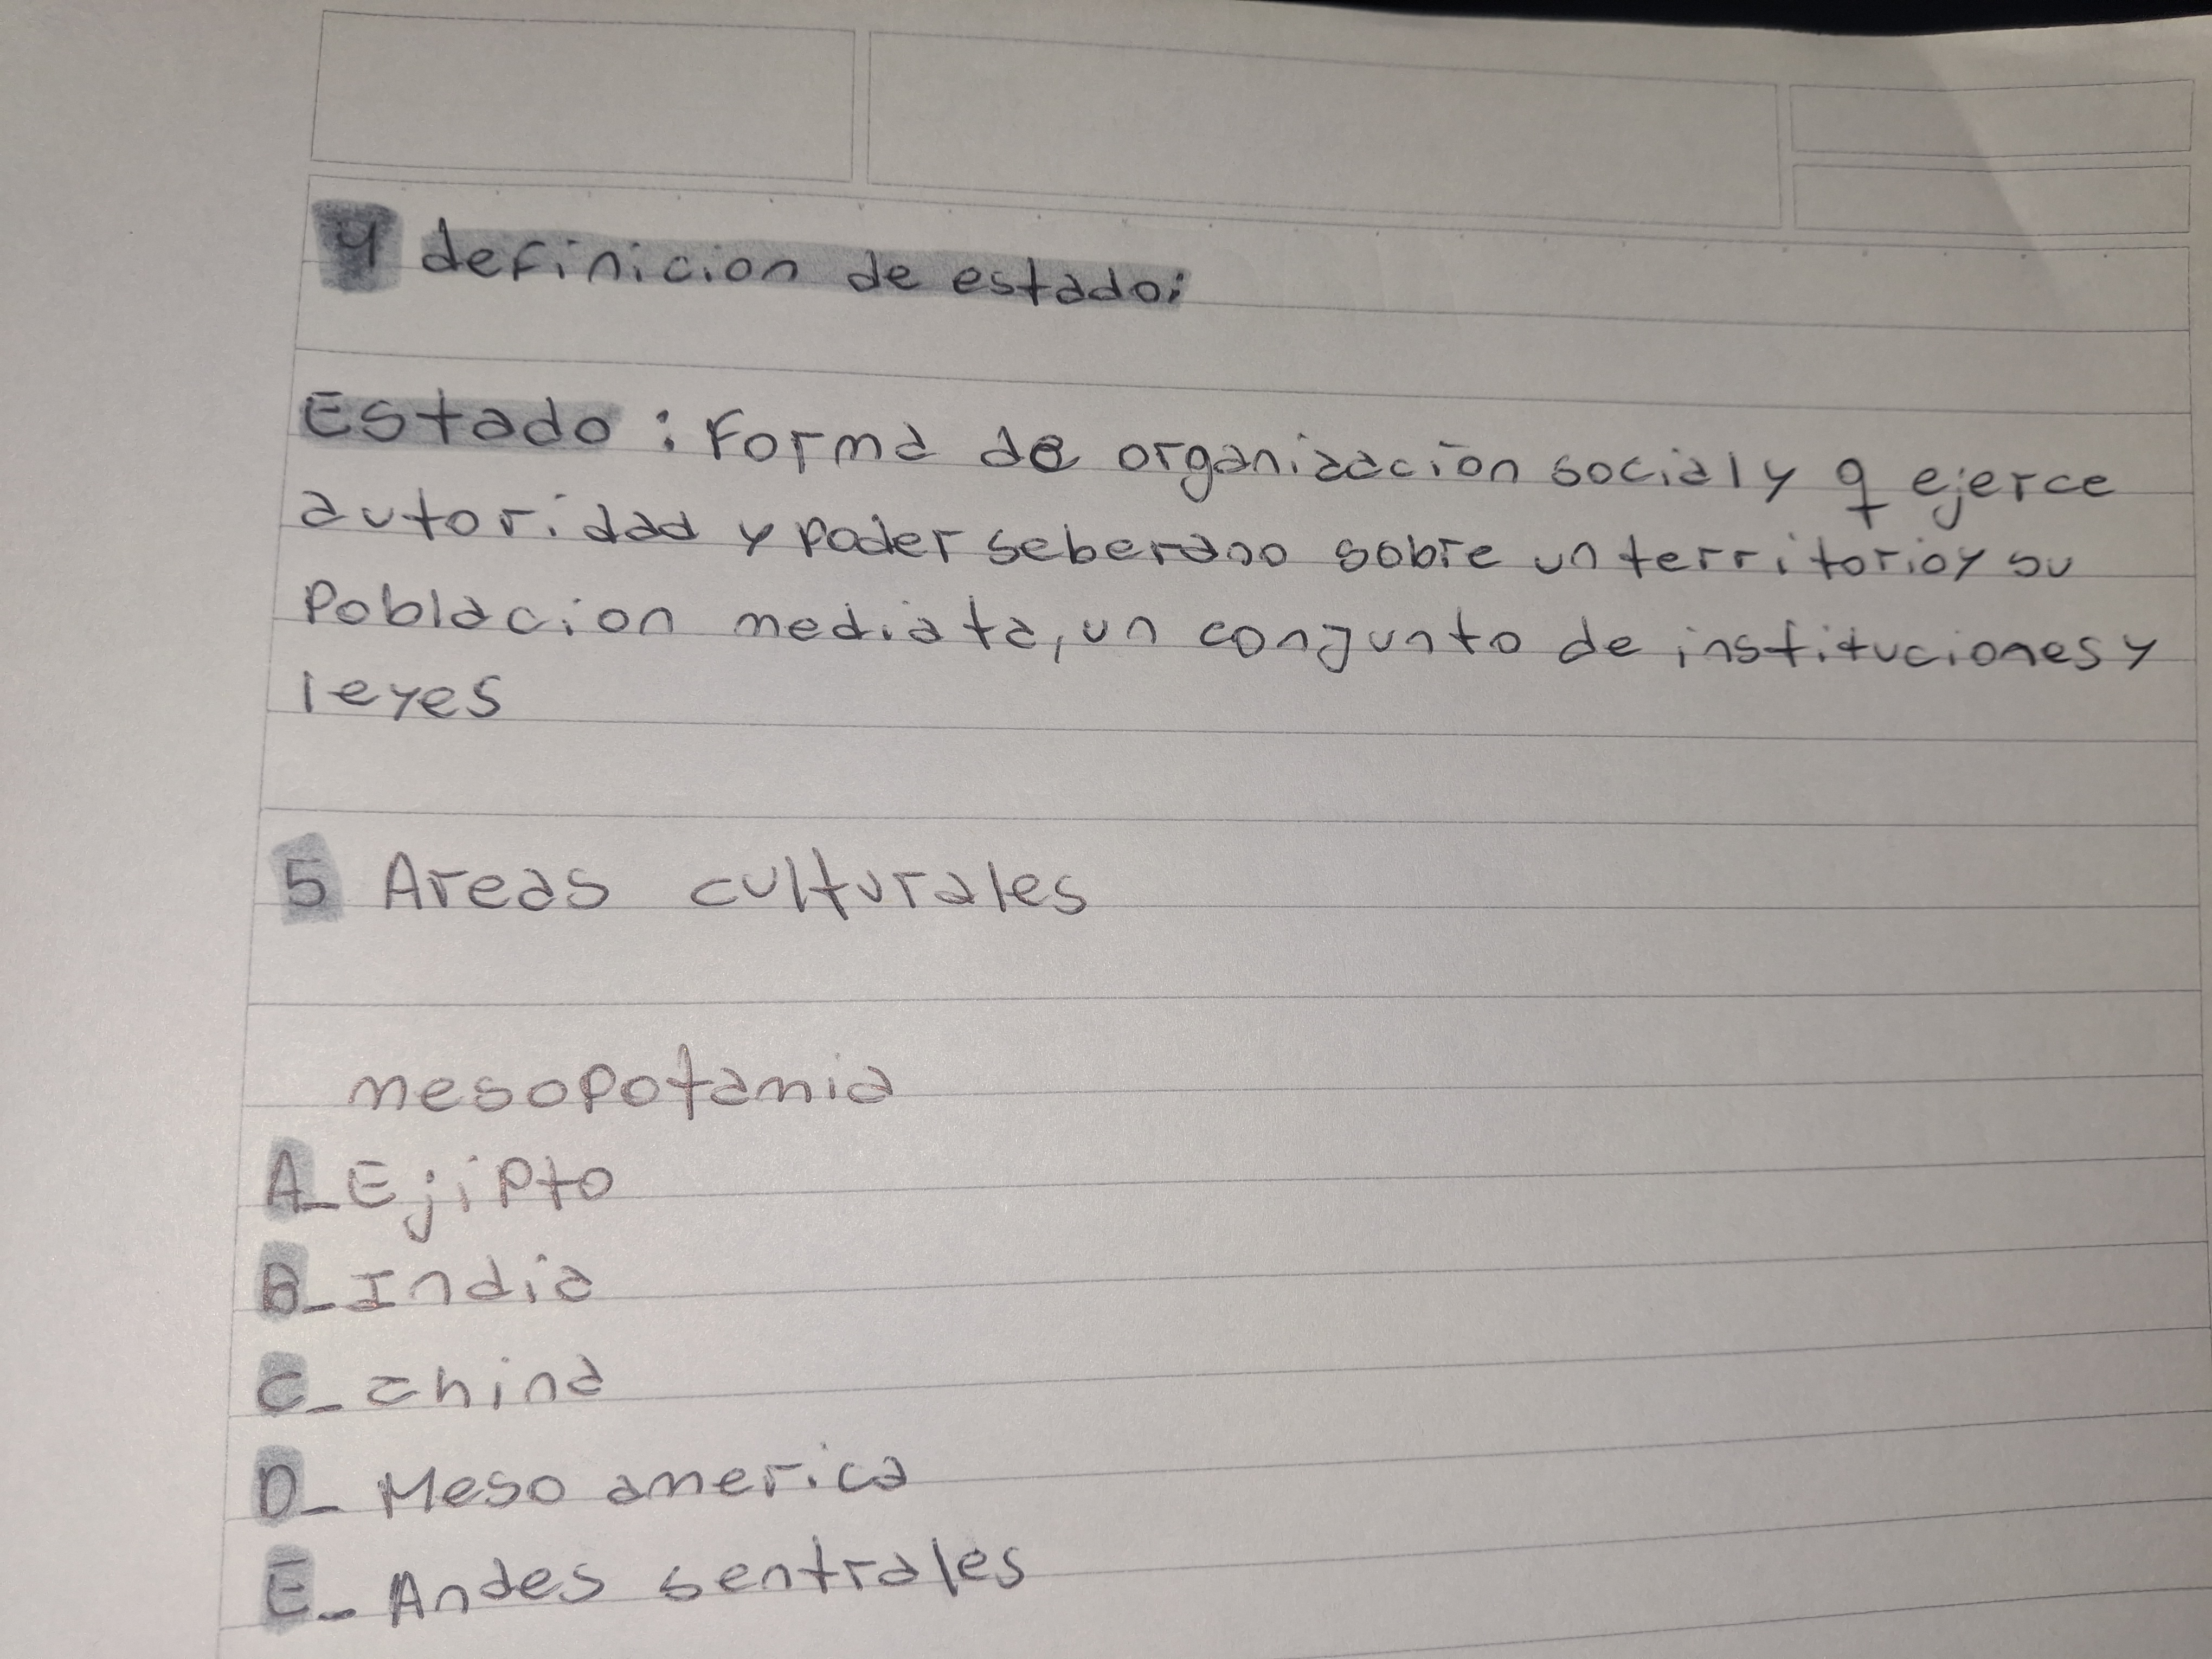 4 definicion de estado:
Estado : Forma de organización social y q ejerce
autoridad y poder seberano sobre un territorio y su
Poblacion mediata, un conjunto de instituciones y
leyes
5 Areas culturales
mesopotamia
A_ Ejipto
B_ India
C_ china
D_ Meso america
E_ Andes sentrales